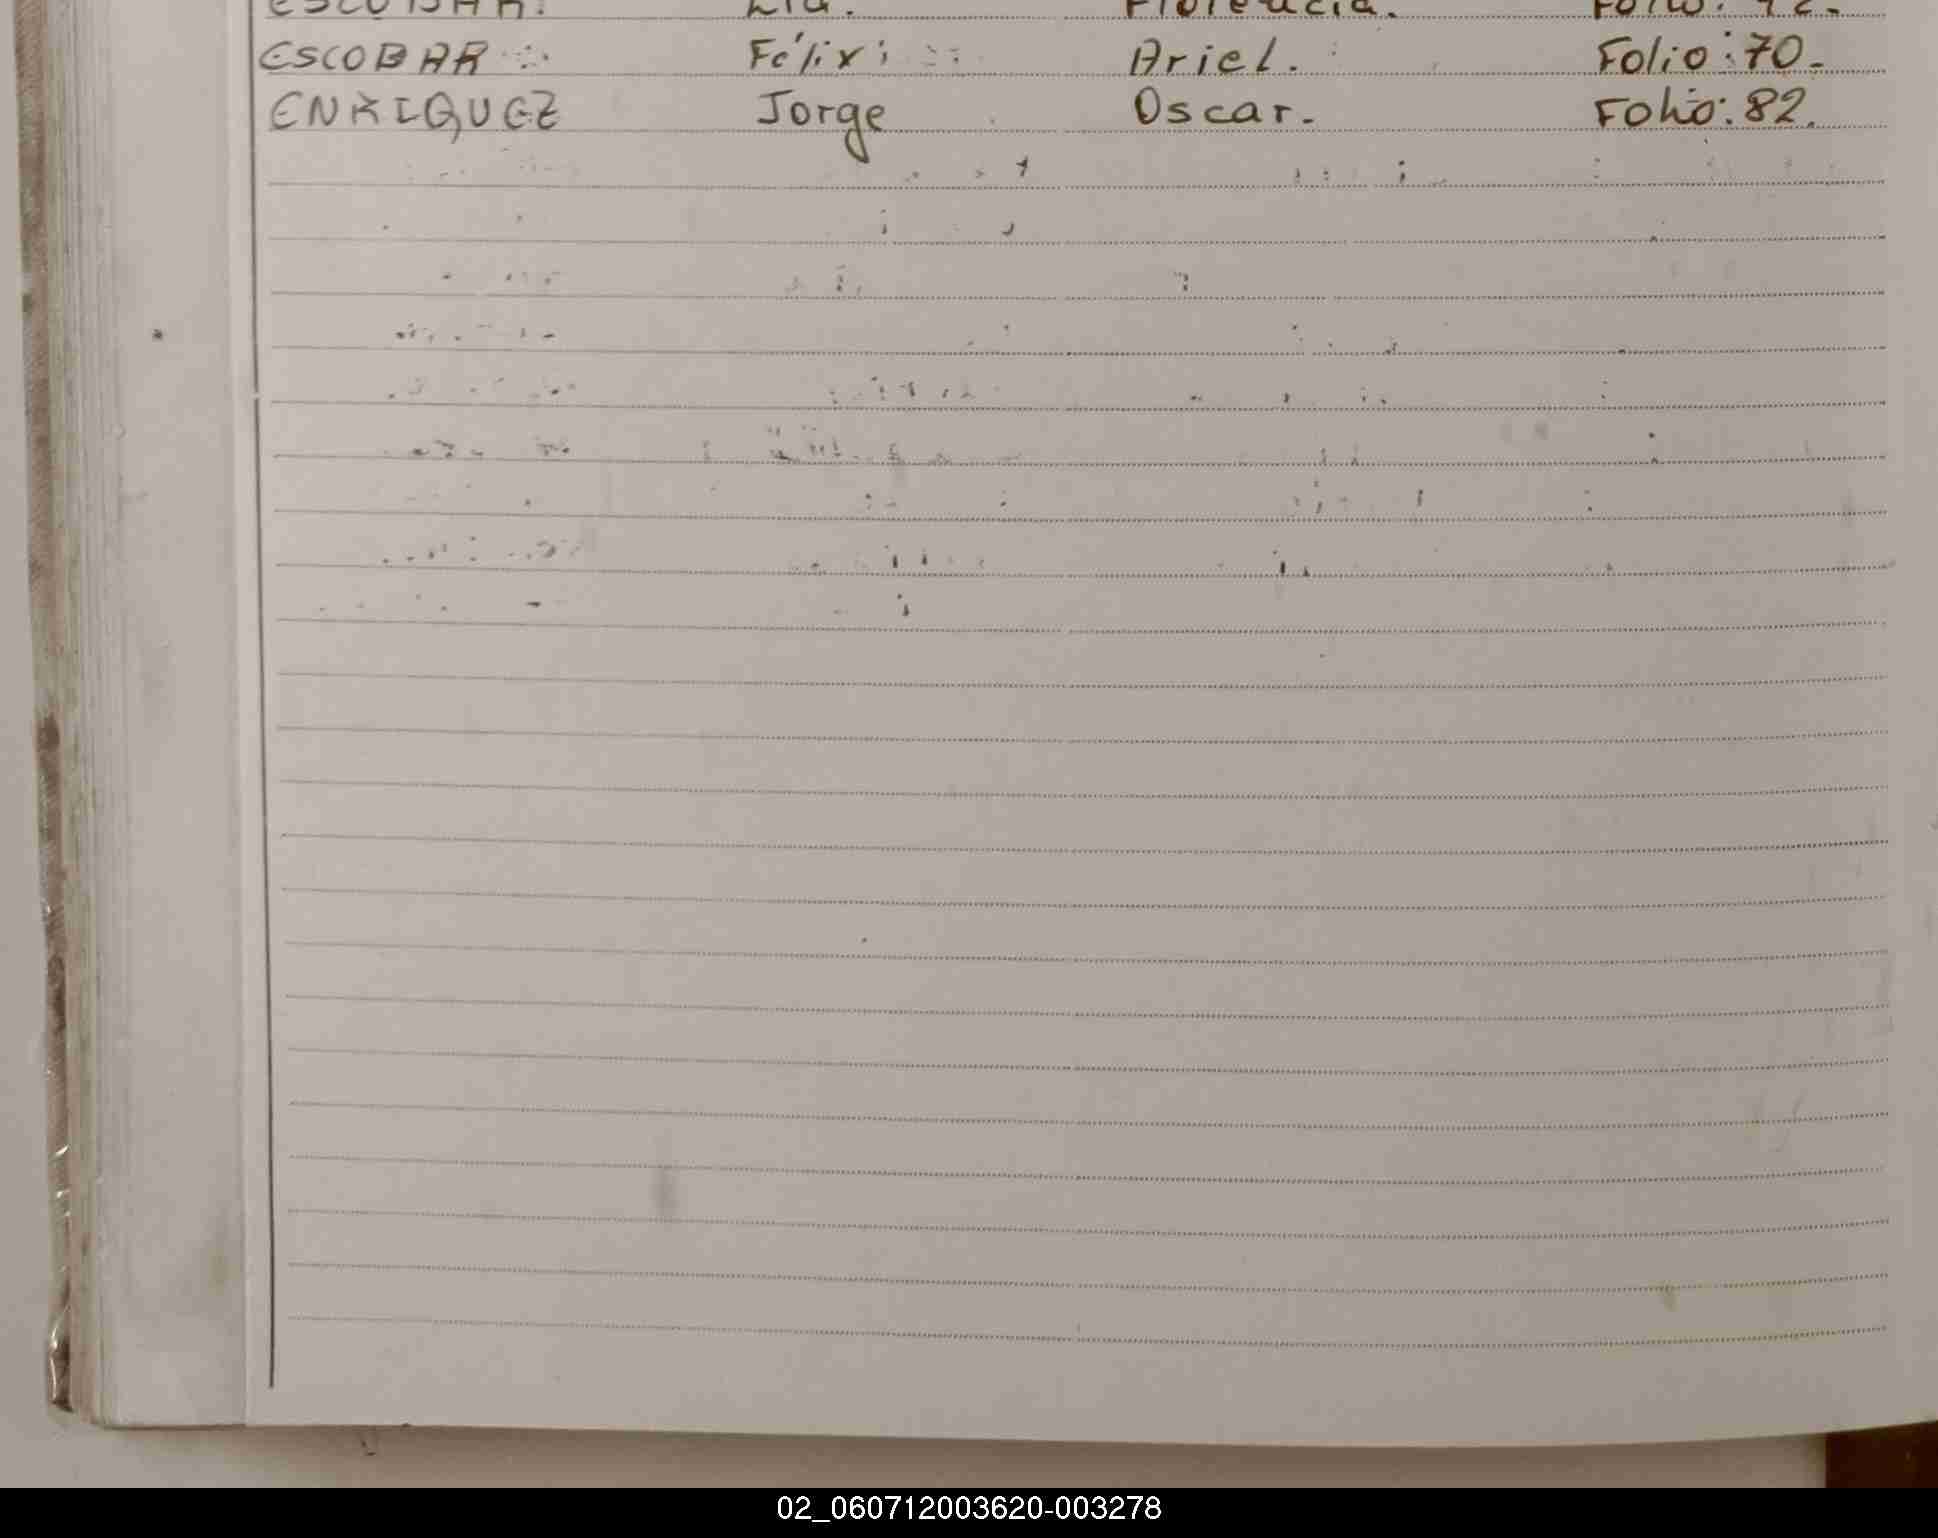 ESCOBAR. Lia. Florencia. Folio: 72.
ESCOBAR Félix Ariel. Folio: 70.
ENRIQUEZ Jorge Oscar. Folio: 82.
02_060712003620-003278